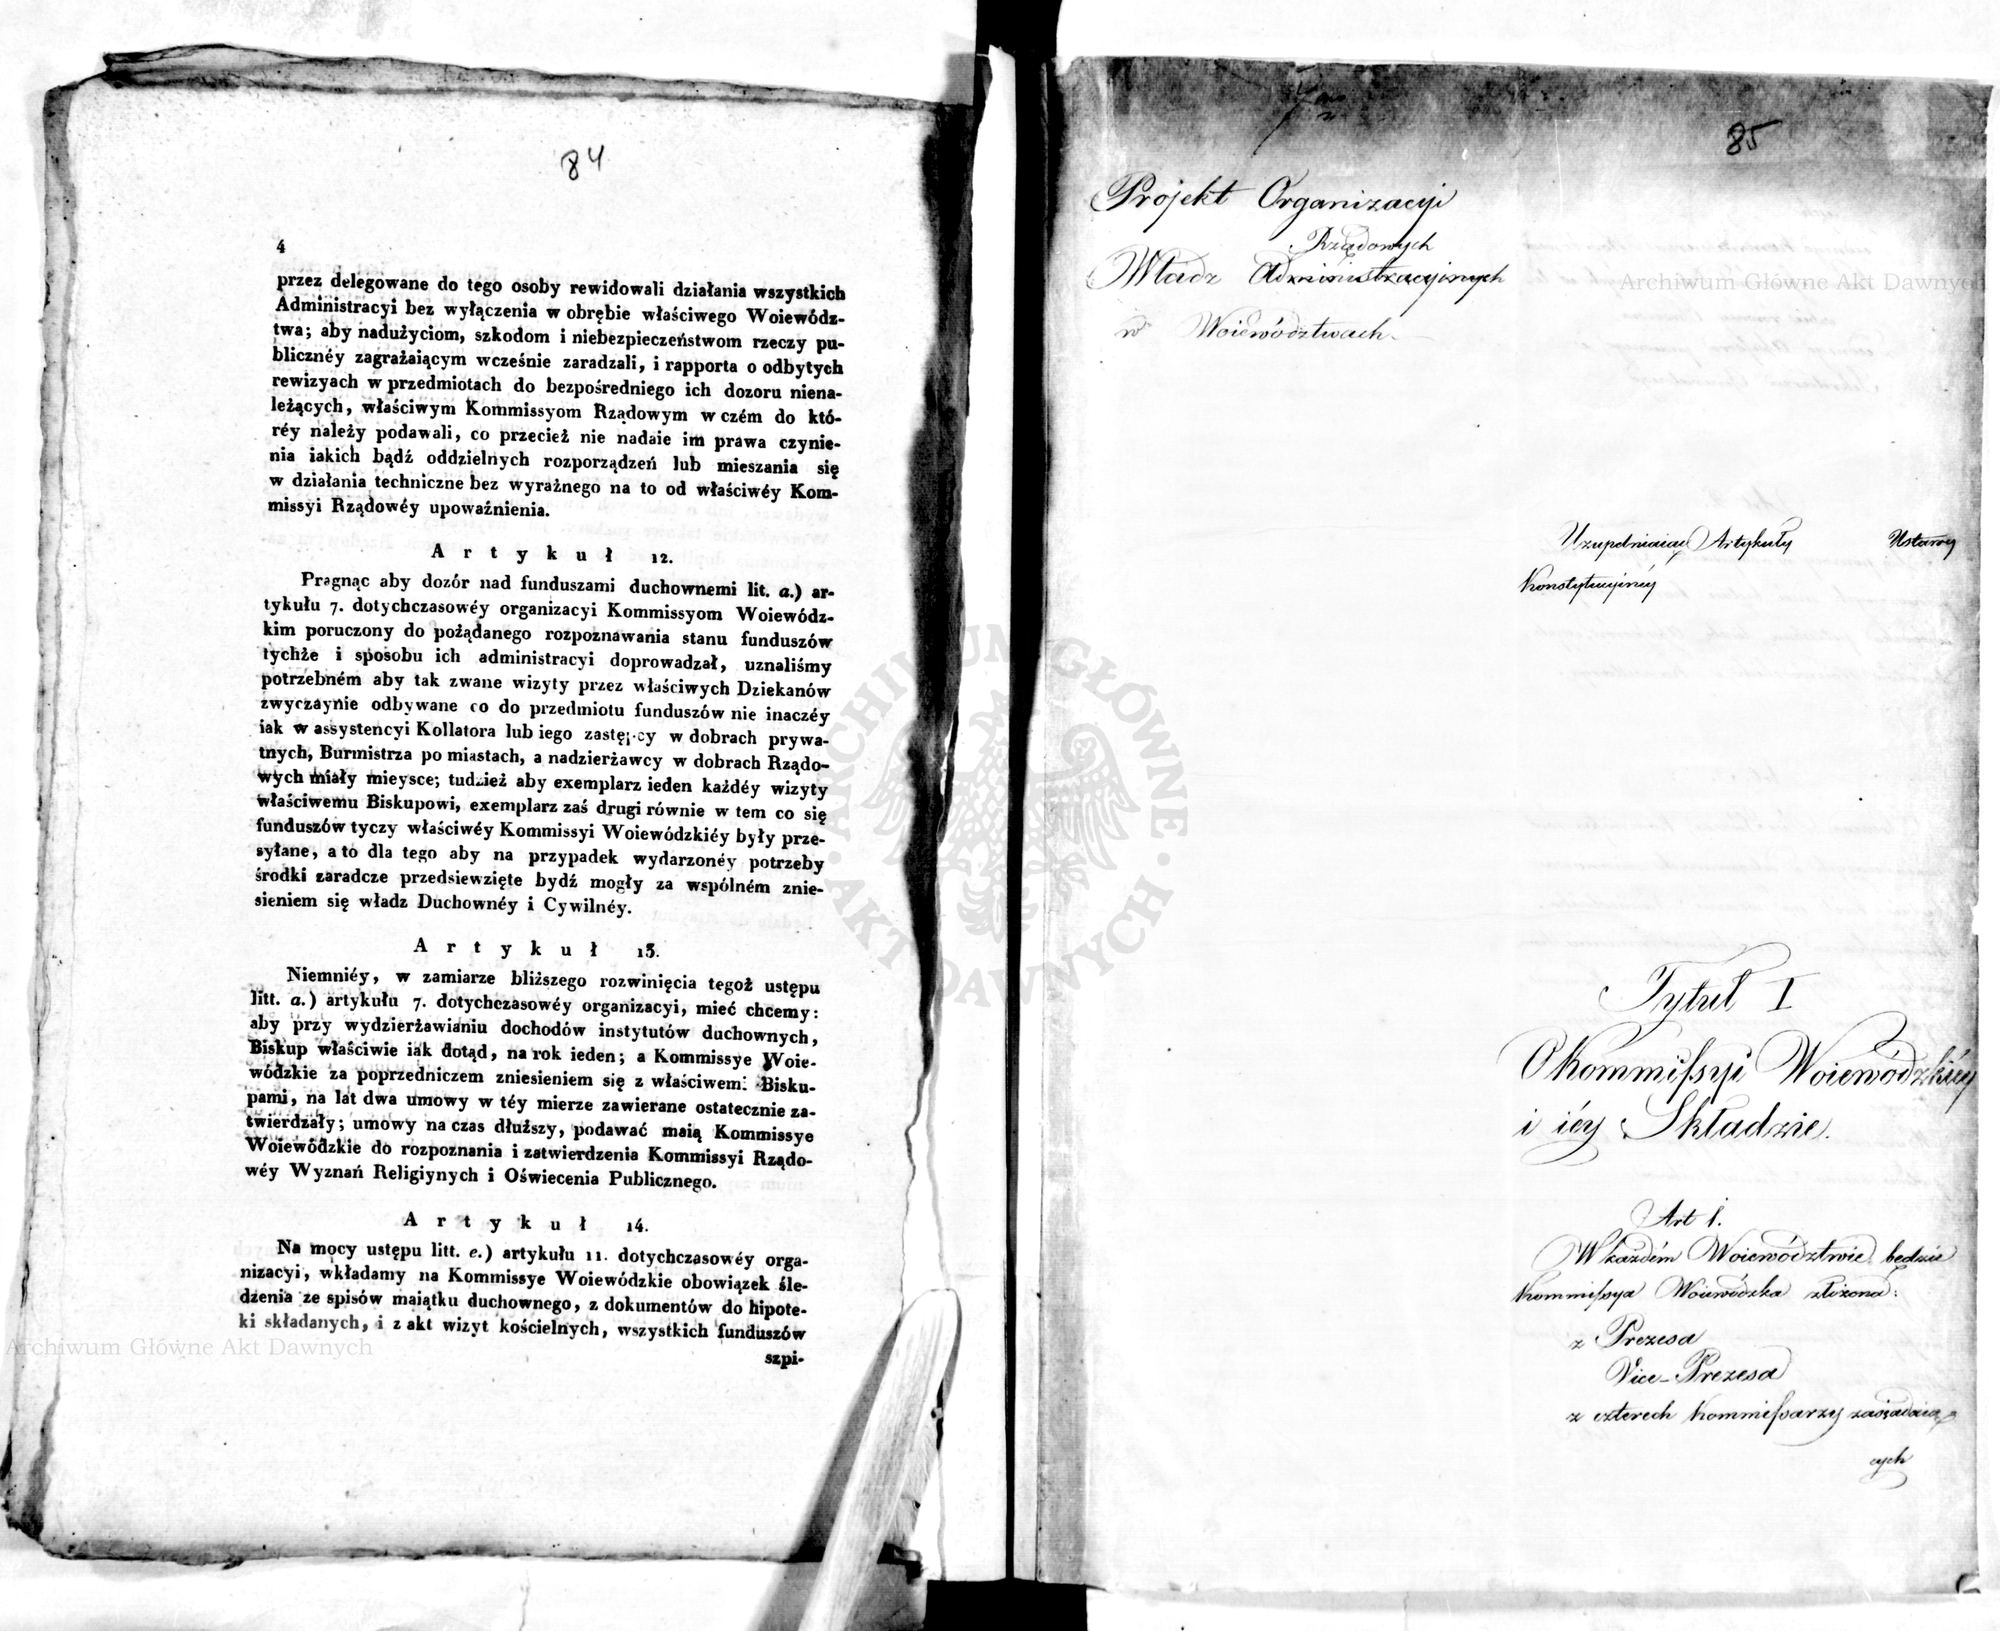 84
4
przez delegowane do tego osoby rewidowali działania wszystkich
Administracyi bez wyłączenia w obrębie właściwego Woiewódz-
twa; aby nadużyciom, szkodom i niebezpieczeństwom rzeczy pu-
blicznéy zagrażaiącym wcześnie zaradzali, i rapporta o odbytych
rewizyach w przedmiotach do bezpośredniego ich dozoru niena-
leżących, właściwym Kommissyom Rządowym w czém do któ-
réy należy podawali, co przecież nie nadaie im prawa czynie-
nia iakich bądź oddzielnych rozporządzeń lub mieszania się
w działania techniczne bez wyraźnego na to od właściwéy Kom-
missyi Rządowéy upoważnienia.
Artykuł 12.
Pragnąc aby dozór nad funduszami duchownemi lit. a.) ar-
tykułu 7. dotychczasowéy organizacyi Kommissyom Woiewódz-
kim poruczony do pożądanego rozpoznawania stanu funduszów
tychże i sposobu ich administracyi doprowadzał, uznaliśmy
potrzebném aby tak zwane wizyty przez właściwych Dziekanów
zwyczaynie odbywane co do przedmiotu funduszów nie inaczéy
iak w assystencyi Kollatora lub iego zastępcy w dobrach prywa-
tnych, Burmistrza po miastach, a nadzierżawcy w dobrach Rządo-
wych miały mieysce; tudzież aby exemplarz ieden każdéy wizyty
właściwemu Biskupowi, exemplarz zaś drugi równie w tem co się
funduszów tyczy właściwéy Kommissyi Woiewódzkiéy były prze-
syłane, a to dla tego aby na przypadek wydarzonéy potrzeby
środki zaradcze przedsiewzięte bydź mogły za wspólném znie-
sieniem się władz Duchownéy i Cywilnéy.
Artykuł 13.
Niemniéy, w zamiarze bliższego rozwinięcia tegoż ustępu
litt. a.) artykułu 7. dotychczasowéy organizacyi, mieć chcemy:
aby przy wydzierżawianiu dochodów instytutów duchownych,
Biskup właściwie iak dotąd, na rok ieden; a Kommissye Woie-
wódzkie za poprzedniczem zniesieniem się z właściwem: Bisku-
pami, na lat dwa umowy w téy mierze zawierane ostatecznie za-
twierdzały; umowy na czas dłuższy, podawać maią Kommissye
Woiewódzkie do rozpoznania i zatwierdzenia Kommissyi Rządo-
wéy Wyznań Religiynych i Oświecenia Publicznego.
Artykuł 14.
Na mocy ustępu litt. e.) artykułu 11. dotychczasowéy orga-
nizacyi, wkładamy na Kommissye Woiewódzkie obowiązek śle-
dzenia ze spisów maiątku duchownego, z dokumentów do hipote-
ki składanych, i z akt wizyt kościelnych, wszystkich funduszów
szpi-
Archiwum Główne Akt Dawnych
ARCHIWUM GŁÓWNE AKT DAWNYCH
85
Projekt Organizacyi
Rządowych
Władz Administracyinych
w Woiewództwach.
Archiwum Główne Akt Dawnych
Uzupełniaiąc Artykuły Ustawy
Konstytucyinéy
Tytuł I
O Kommissyi Woiewódzkiéy
i iéy Składzie.
Art 1.
W każdém Woiewództwie będzie
Kommissya Woiewódzka złożona:
z Prezesa
Vice-Prezesa
z czterech Kommissarzy zasiadaią
cych